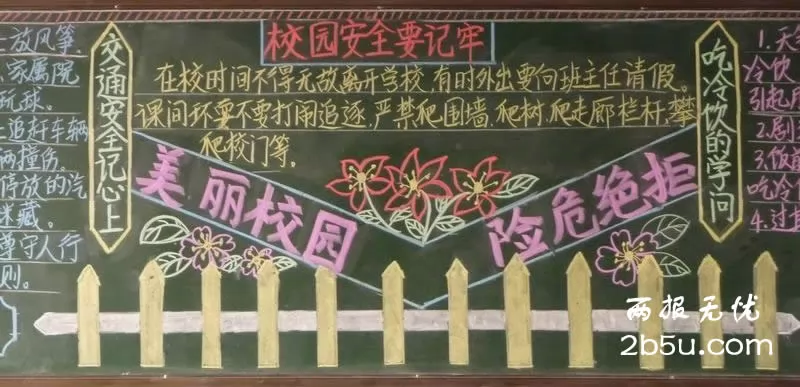 放风筝,
家属院
玩球。
追杆车辆
撞伤。
停放的汽
迷藏。
遵守人行
则。
交通安全记心上
校园安全要记牢
在校时间不得无故离开学校,有时外出要向班主任请假。
课间环耍不要打闹追逐,严禁爬围墙、爬树、爬走廊栏杆、攀
爬校门等。
美丽校园
险危绝拒
吃冷饮的学问
1.天
冷饮
引起
2.剧
3.饭前
吃冷
4.过
两报无忧
2b5u.com